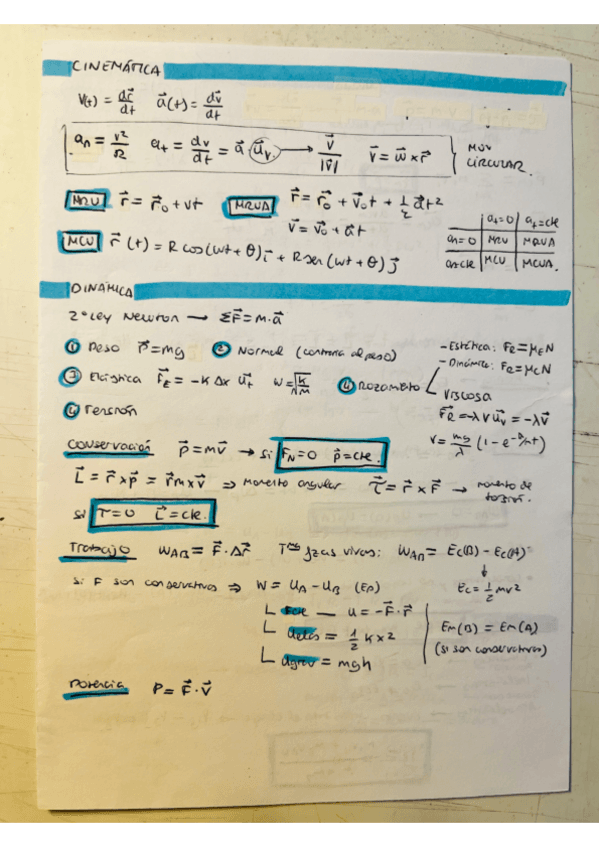 CINEMÁTICA
V(t) = dr⃗/dt   a⃗(t) = dv⃗/dt
an = v²/R   at = dv/dt = a⃗ · u⃗v → v⃗/|v⃗|   v⃗ = ω⃗ × r⃗ } MOV CIRCULAR.
MRU r⃗ = r⃗o + vt   MRUA r⃗ = r⃗o + v⃗o t + 1/2 a⃗t²
v⃗ = v⃗o + a⃗t
MCU r⃗(t) = R cos(wt + θ) i⃗ + R sen(wt + θ) j⃗
at=0   at=cte
an=0   MRU   MRUA
an=cte   MCU   MCUA.
DINÁMICA
2ª Ley Newton → ΣF⃗ = m·a⃗
① Peso P⃗=mg   ② Normal (contraria al peso)
③ Elástica F⃗E = -K Δx u⃗t   w = √K/m   ④ Rozamiento
- Estática: FR = μE N
- Dinámica: FR = μC N
VISCOSA
F⃗R = -λ v u⃗v = -λv⃗
V = mg/λ (1 - e^-b/m t)
④ Tensión
Conservación p⃗ = mv⃗ → si FN=0 p⃗=cte.
L⃗ = r⃗ × p⃗ = r⃗ m × v⃗ ⇒ Momento angular   τ⃗ = r⃗ × F⃗ → momento de torsión.
si τ=0 L⃗=cte.
Trabajo WAB = F⃗ · Δr⃗   Tma fzas vivas: WAB = Ec(B) - Ec(A)
↓
Ec = 1/2 mv²
si F son conservativas ⇒ W = UA - UB (Ep)
Fcte — u = -F⃗ · r⃗
Uelas = 1/2 K x2
Ugrav = mgh
Em(B) = Em(A)
(si son conservativas)
Potencia P = F⃗ · V⃗